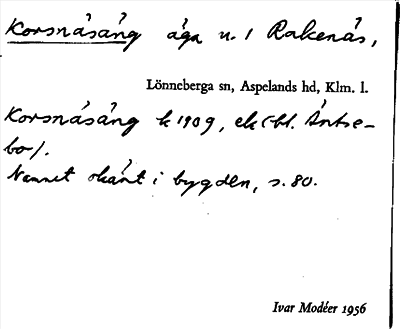 Korsnåsäng äga u. / Rakenäs,
Lönneberga sn, Aspelands hd, Klm. l.
Korsnåsäng k 1909, ek (-bl. Äntse-
bo).
Namnet okänt i bygden, s. 80.
Ivar Modéer 1956